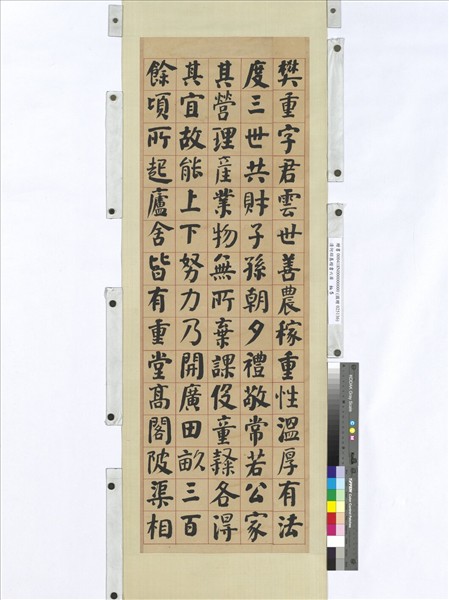 樊重字君雲世善農稼重性溫厚有法
度三世共財子孫朝夕禮敬常若公家
其營理產業物無所棄課伇童隷各得
其宜故能上下努力乃開廣田畝三百
餘頃所起廬舍皆有重堂髙閣陂渠相